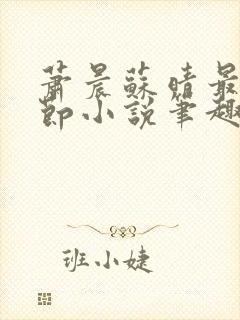 萧晨蘇晴最
節小説筆趣
班小婕